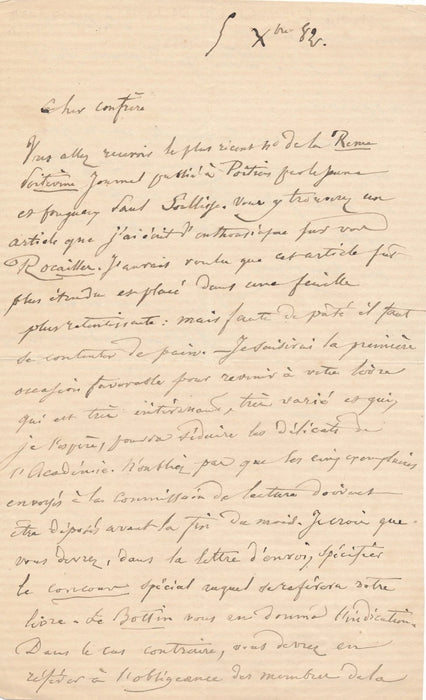 5 Xbre 82.
Cher confrère
Vous allez recevoir le plus récent No de la Revue
Poitevine Journal publié à Poitiers par le jeune
et fougueux Vous y trouverez un
article que j'ai écrit d'enthousiasme sur vos
Rocailles. J'aurais voulu que cet article fût
plus étendu et placé dans une feuille
plus retentissante : mais faute de pâté il faut
se contenter de pain. - Je saisirai la première
occasion favorable pour revenir à votre livre
qui est très intéressant, très varié et qui,
je l'espère, pourra séduire les délicats de
l'Académie. N'oubliez pas que les cinq exemplaires
envoyés à la commission de lecture doivent
être déposés avant la fin du mois. Je crois que
vous devrez, dans la lettre d'envoi, spécifier
le concours spécial auquel se référera votre
livre. - Le Bottin vous en donnera l'indication.
Dans le cas contraire, vous devrez en
référer à l'obligeance des membres de la